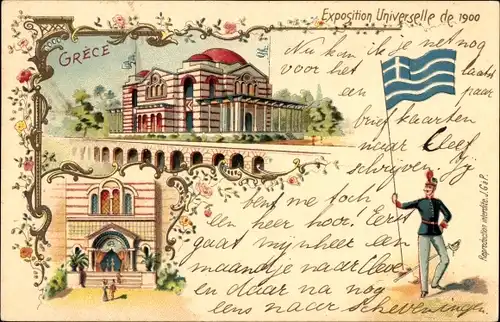 Exposition Universelle de 1900
GRÈCE
Nu kan ik je net nog
voor het laatst
een paar
briefkaarten
naar Cleef
schrijven. Jij
bent me toch
een heer hoor! Eerst
gaat mijnheer een
maandje naar Cleve
en daar na nog
eens naar scheveningen.
Reproduction interdite. J.G. à P.